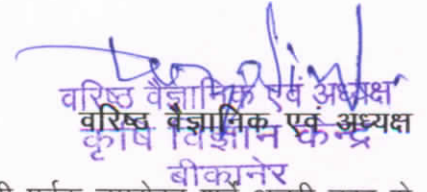 वरिष्ठ वैज्ञानिक एवं अध्यक्ष
वरिष्ठ वैज्ञानिक एवं अध्यक्ष
कृषि विज्ञान केन्द्र
बीकानेर